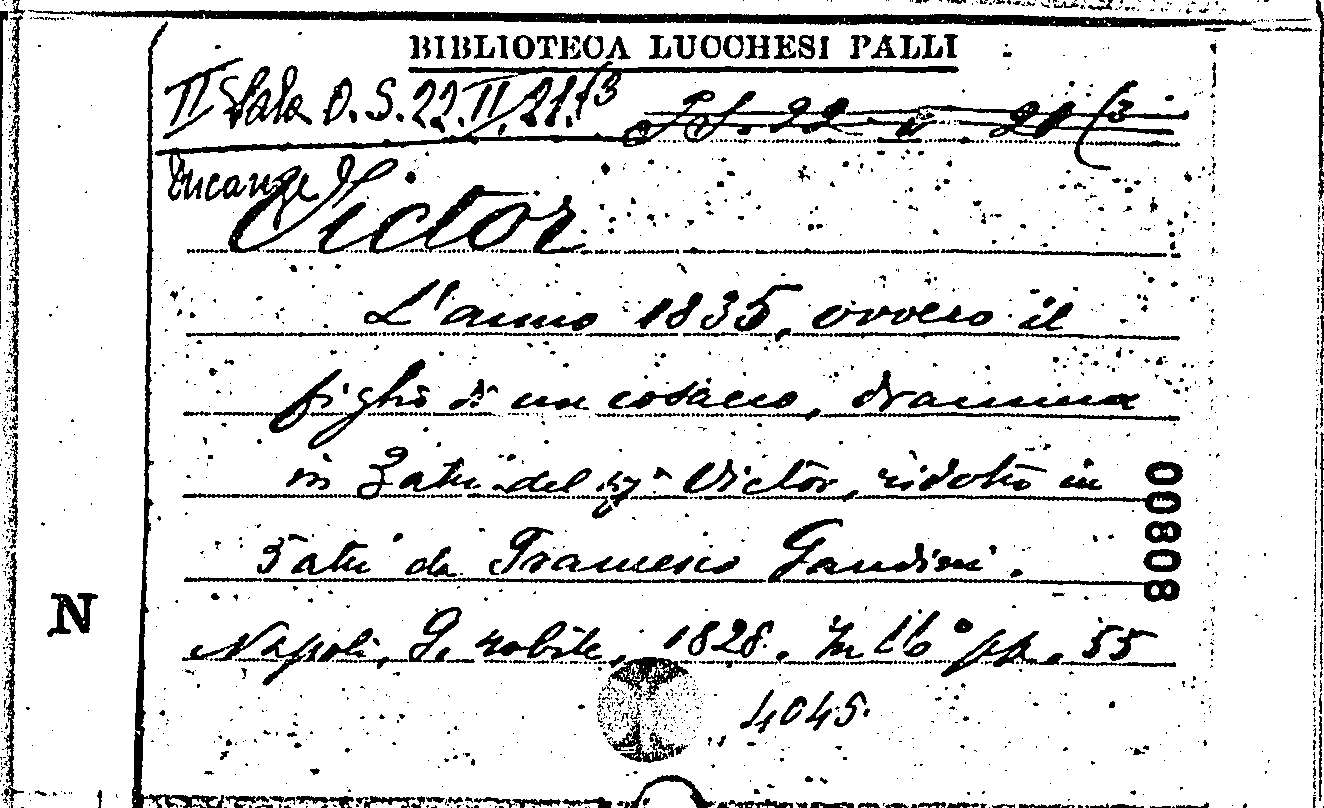 BIBLIOTECA LUCCHESI PALLI
II Sala O. S. 22. II. 21.(3
22 20 (3
Ducange V
Victor
L'anno 1835, ovvero il
figlio di un cosacco, dramma
in 3 atti del sigr Victor, ridotto in
5 atti da Francesco Gandini.
Napoli, G. nobile, 1828. In 16° pp. 55
4045.
00808
N